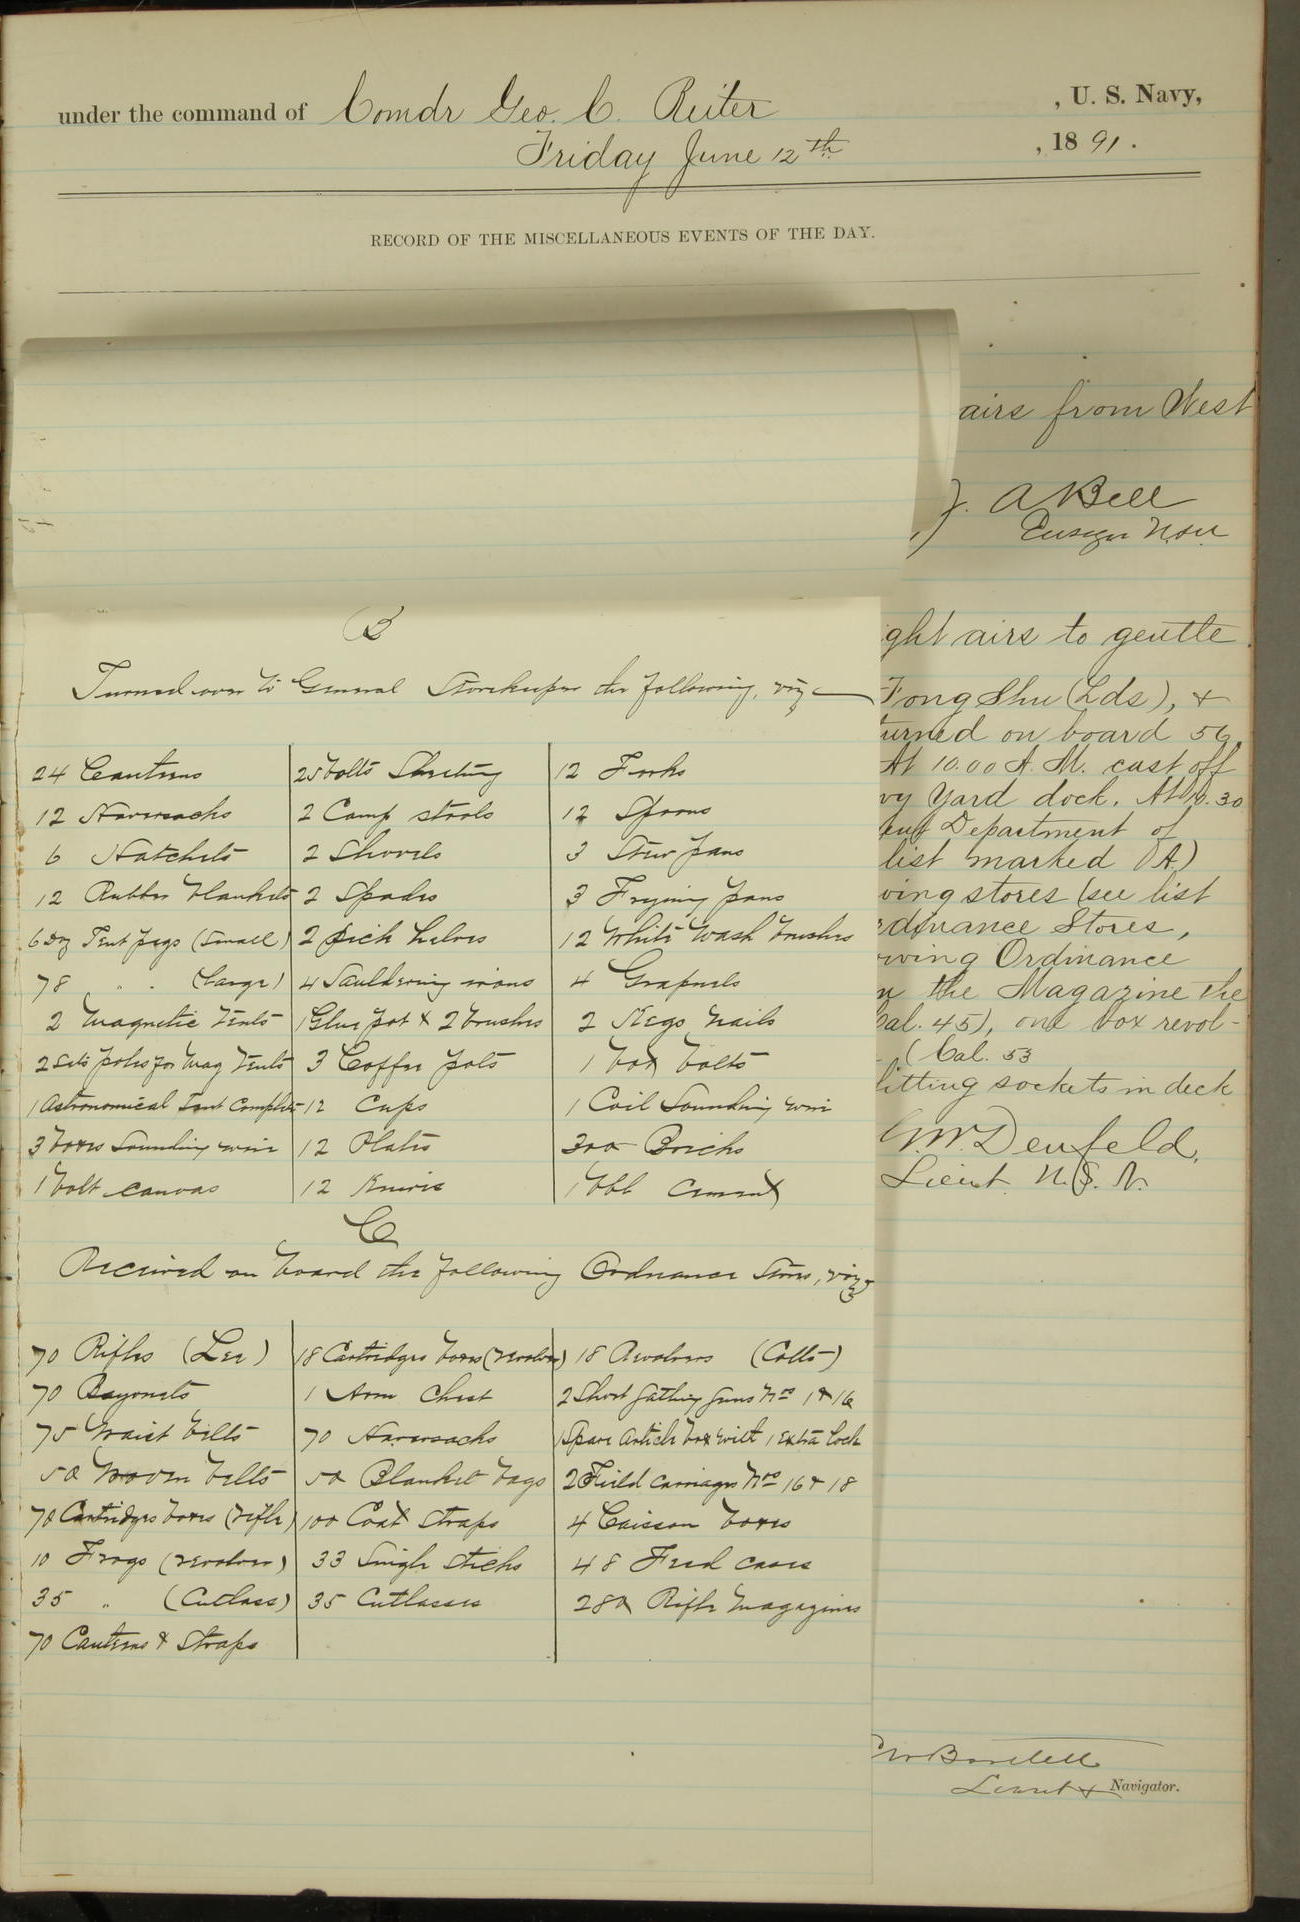 under the command of Comdr Geo. C. Reiter , U. S. Navy,
Friday June 12th , 1891.
RECORD OF THE MISCELLANEOUS EVENTS OF THE DAY.
airs from West
J. A Bell
Ensign
B
Turned over to General Storekeeper the following, viz
24 Canteens
12 Haversacks
6 Hatchets
12 Rubber blankets
6 Dz Tent pegs (Small)
78 " " (Large)
2 Magnetic Tents
2 Sets poles for Mag Tents
1 Astronomical Tent Complete
3 boxes Sounding wire
1 bolt canvas
25 bolts Sheeting
2 Camp stools
2 Shovels
2 Spades
2 Pick helves
4 Sauldering irons
1 Glue pot & 2 brushes
3 Coffee pots
12 Cups
12 Plates
12 Knives
12 Forks
12 Spoons
3 Stew pans
3 Frying pans
12 White wash brushes
4 Grapnels
2 Kegs Nails
1 box bolts
1 Coil Sounding wire
300 Bricks
1 bbl cement
C
Received on board the following Ordnance Stores, viz
70 Rifles (Lee)
70 Bayonets
75 Waist belts
50 Woven belts
70 Cartridges boxes (rifle)
10 Frogs (revolver)
35 " (Cutlass)
70 Canteens & Straps
18 Cartridges boxes (revolver)
1 Arm Chest
70 Haversacks
50 Blanket bags
100 Coat Straps
33 Single Sticks
35 Cutlasses
18 Revolvers (Colts)
2 Short Gatling Guns Nos 1 & 16
1 Spare Article box with 1 Extra Lock
2 Field Carriages Nos 16 & 18
4 Caisson boxes
48 Feed cases
280 Rifle Magazines
ght airs to gentle
Fong Shu (Lds), &
turned on board 56
At 10.00 A.M. cast off
vy Yard dock. At 10.30
Department of
list marked (A.)
wing stores (see list
rdinance Stores,
owing Ordinance
the Magazine the
Cal. 45), one box revol-
(Cal. 53
fitting sockets in deck
G.W. Denfeld,
Lieut. U.S.N.
CW Bartlett
Lieut & Navigator.